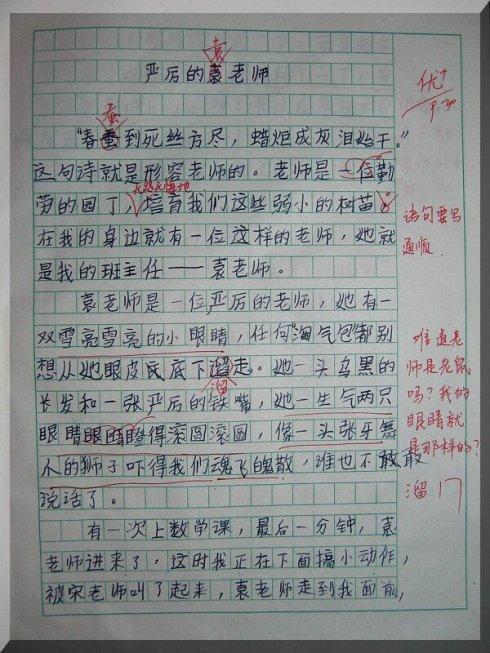 袁
严厉的袁老师
优+
9.30
蚕
"春蚕到死丝方尽，蜡炬成灰泪始干。"
这句诗就是形容老师的。老师是一位勤
无怨无悔地
劳的园丁，培育我们这些弱小的树苗。
语句要写
通顺.
在我的身边就有一位这样的老师，她就
是我的班主任——袁老师。
袁老师是一位严厉的老师，她有一
双雪亮雪亮的小眼睛，任何"淘气包"都别
想从她眼皮底底下溜走。她一头乌黑的
溜
长发和一张严厉的铁嘴，她一生气两只
眼睛眼睛瞪得滚圆滚圆，像一头张牙舞
爪的狮子吓得我们魂飞魄散，谁也不敢敢
说话了。
难道老
师是老鼠
吗？我的
眼睛就
是那样的？
溜
有一次上数学课，最后一分钟，袁
老师进来了，这时我正在下面搞小动作，
被宋老师叫了起来，袁老师走到我面前，